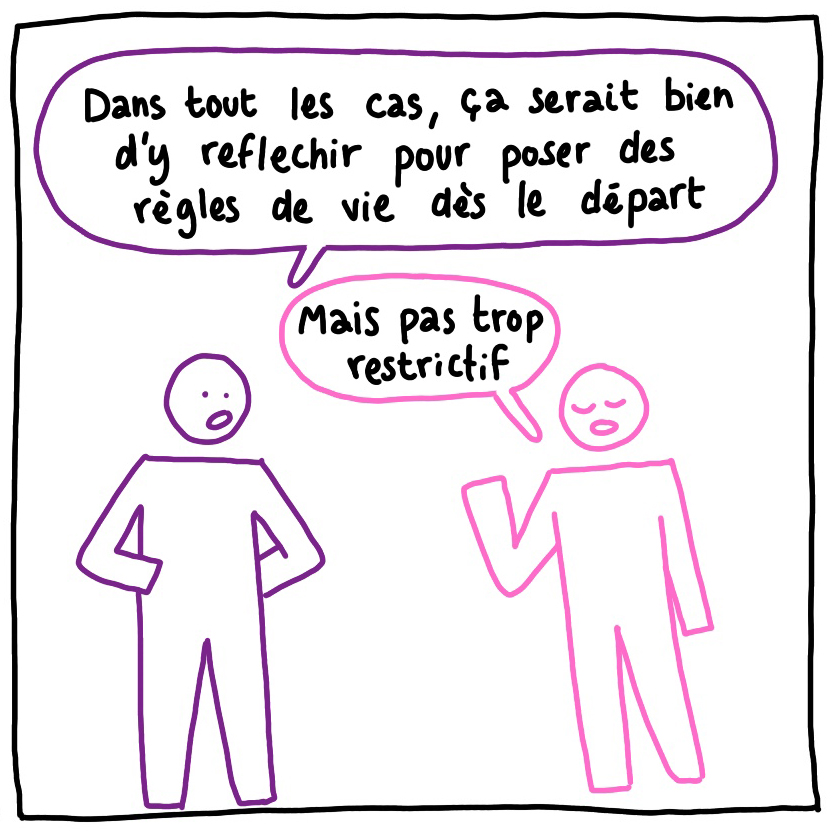 Dans tout les cas, ça serait bien
d'y reflechir pour poser des
règles de vie dès le départ
Mais pas trop
restrictif